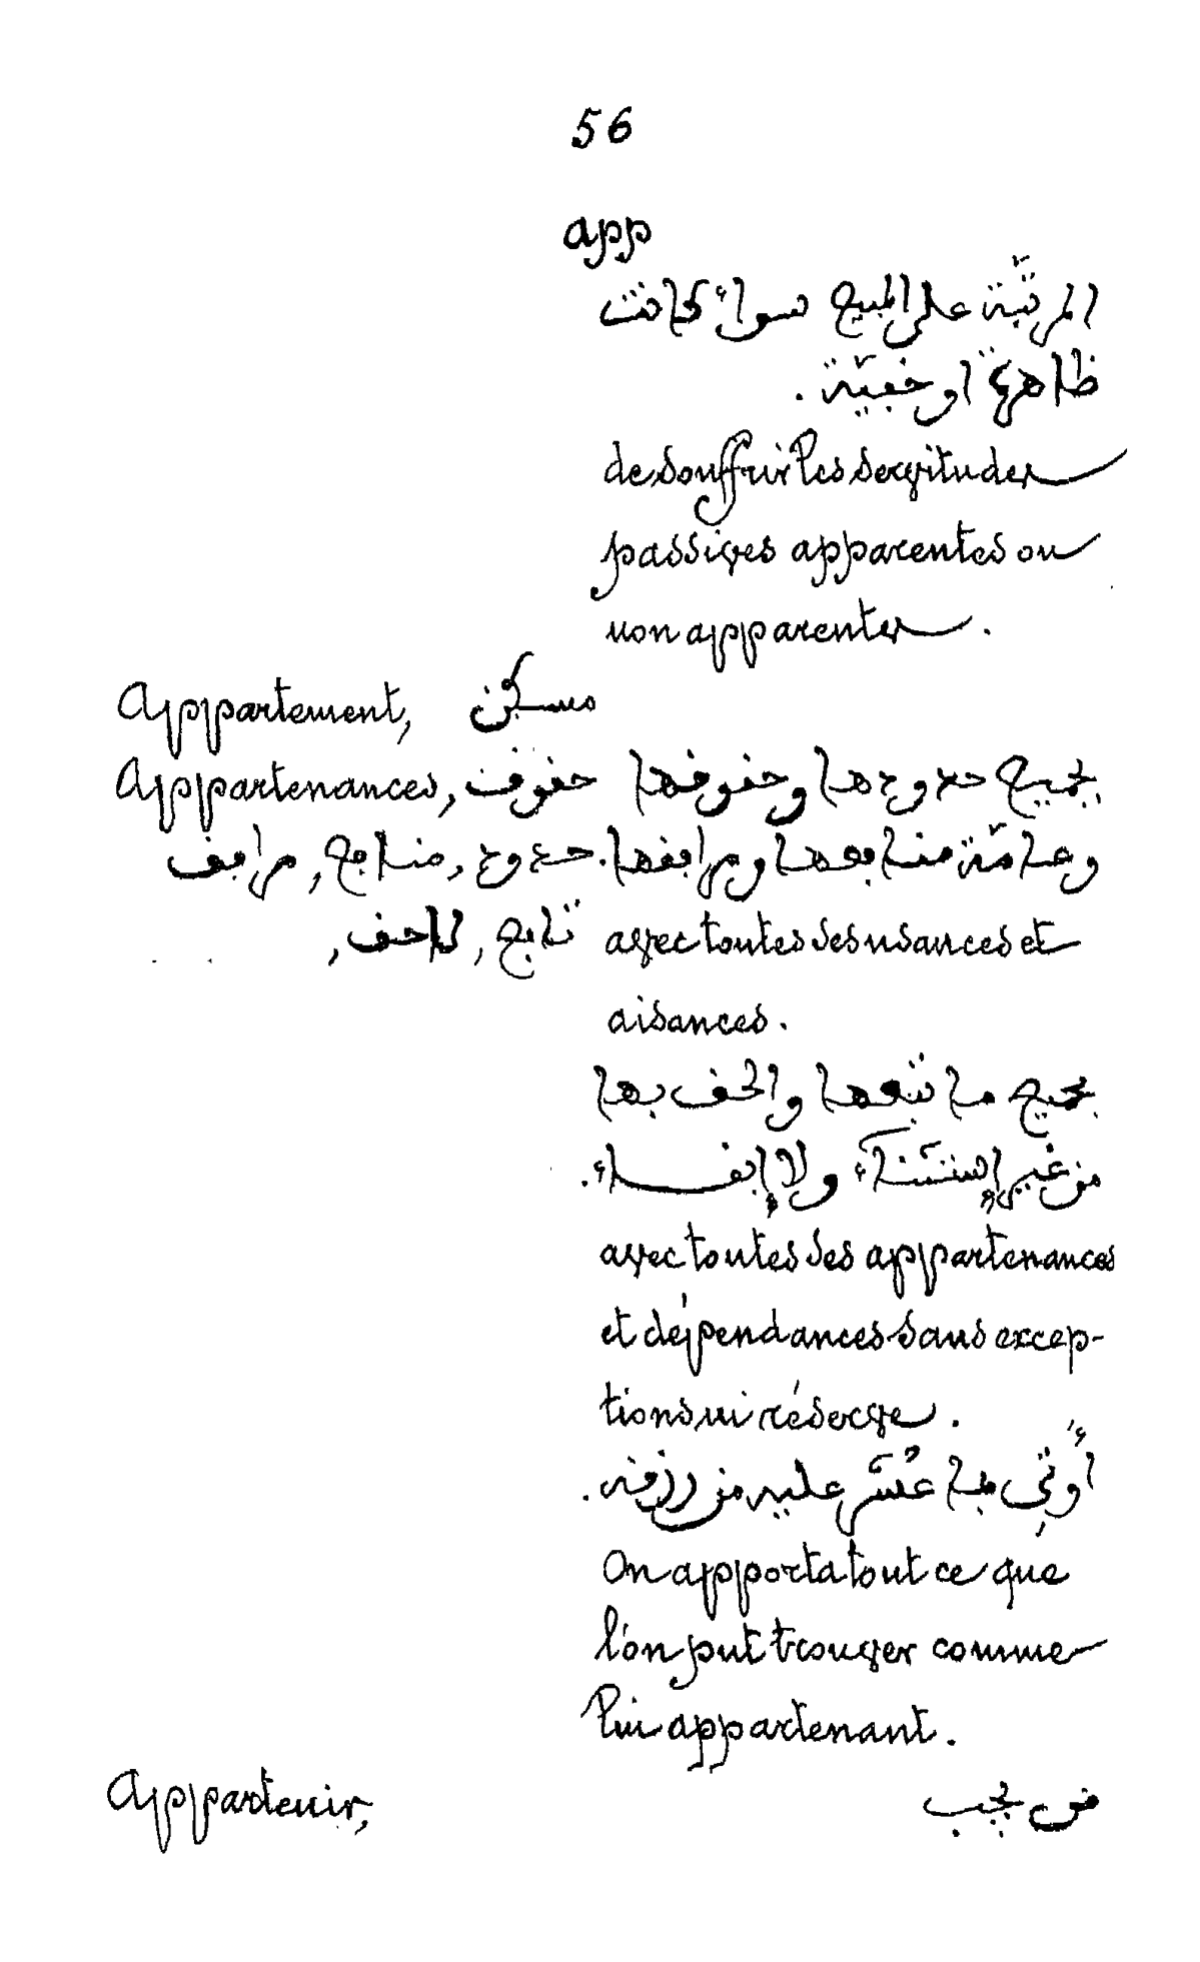 56
app
المرتّبة على المبيع سواءٌ كانت
ظاهرة او خفيّة .
de souffrir les servitudes
passives apparentes ou
non apparentes .
Appartement, مسكن
Appartenances, حقوق بجميع حدودها وحقوقها
وعامّة منافعها ومرافقها. حدود, منافع, مرافق
تابع, لاحق, avec toutes ses usances et
aisances .
بجميع ما تبعها والحق بها
من غير إستثنآء ولا إبقاء .
avec toutes ses appartenances
et dépendances sans excep-
tions ni réserve .
أُوتِي بما عُثّر عليه من رزقه .
On apporta tout ce que
l'on put trouver comme
lui appartenant .
Appartenir, من يجب